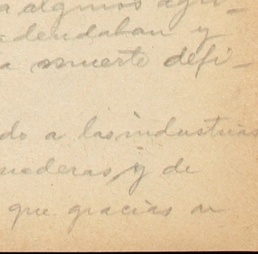 a algunos agri-
dendaban y
a muerte defi-
do a las industrias
maderas y de
que gracias a